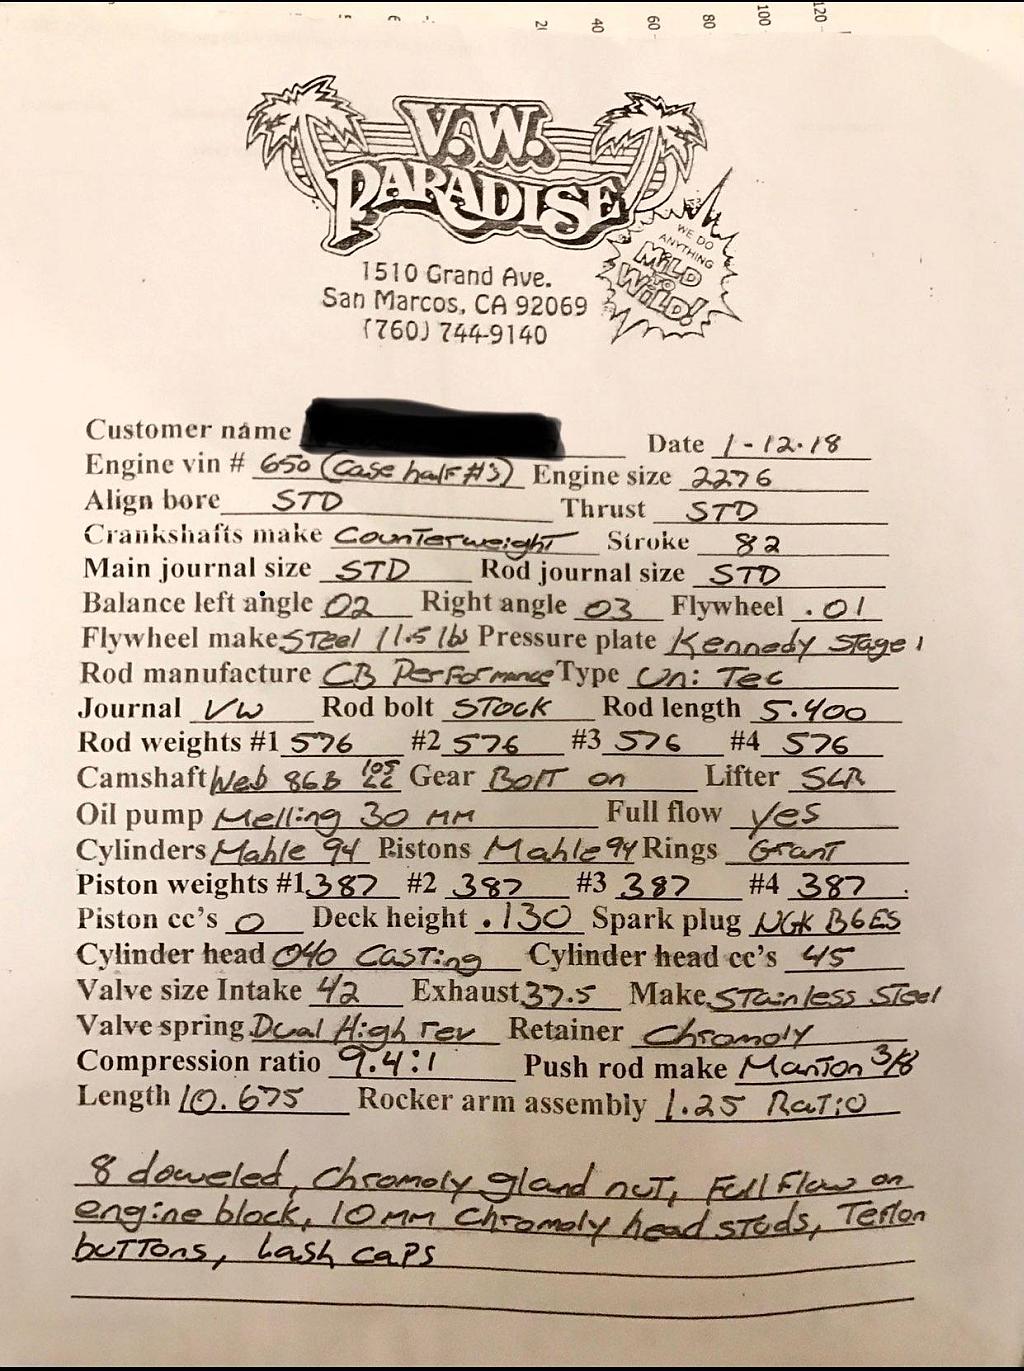 20 40 60 80 100 120
V.W.
PARADISE
WE DO
ANYTHING
MILD
TO
WILD!
1510 Grand Ave.
San Marcos, CA 92069
(760) 744-9140
Customer name Date 1-12-18
Engine vin # 650 (case half #3) Engine size 2276
Align bore STD Thrust STD
Crankshafts make Counterweight Stroke 82
Main journal size STD Rod journal size STD
Balance left angle 02 Right angle 03 Flywheel .01
Flywheel make Steel 11.5 lbs Pressure plate Kennedy Stage 1
Rod manufacture CB Performance Type Uni Tec
Journal VW Rod bolt STOCK Rod length 5.400
Rod weights #1 576 #2 576 #3 576 #4 576
Camshaft Web 86B Gear Bolt on Lifter SLR
Oil pump Melling 30 MM Full flow yes
Cylinders Mahle 94 Pistons Mahle 94 Rings Grant
Piston weights #1 387 #2 387 #3 387 #4 387
Piston cc's 0 Deck height .130 Spark plug NGK B6ES
Cylinder head 040 Casting Cylinder head cc's 45
Valve size Intake 42 Exhaust 37.5 Make Stainless Steel
Valve spring Dual High rev Retainer Chromoly
Compression ratio 9.4:1 Push rod make Manton 3/8
Length 10.675 Rocker arm assembly 1.25 Ratio
8 doweled, Chromoly gland nut, Full Flow on
engine block, 10MM Chromoly head studs, Teflon
buttons, Lash caps